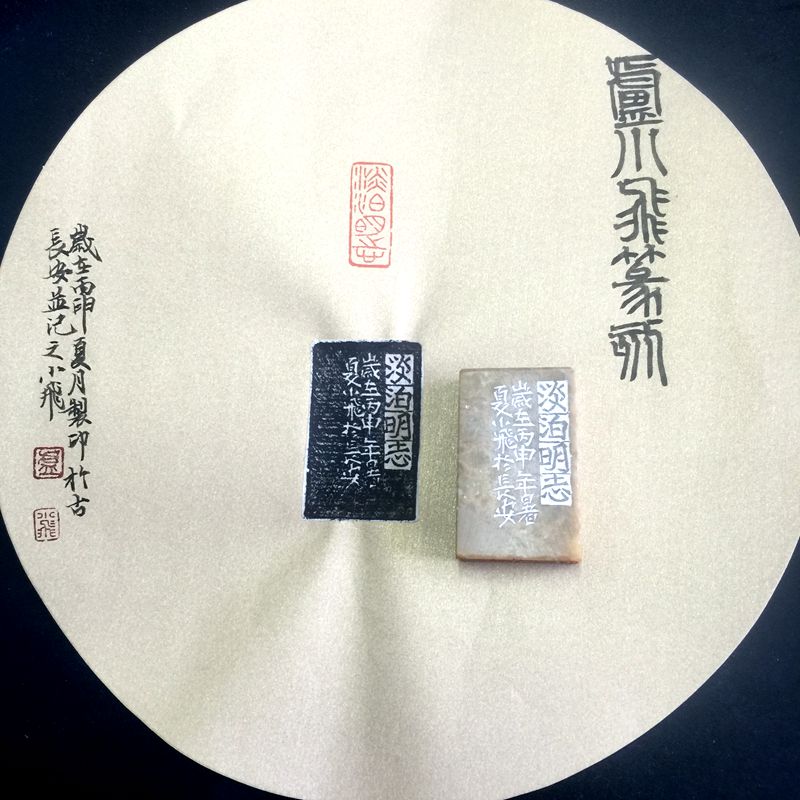 盧小飛篆刻
淡泊明志
淡泊明志
歲在丙申年暑
夏小飛於長安
淡泊明志
歲在丙申年暑
夏小飛於長安
歲在丙申夏月製印於古
長安並记之小飛
盧
小飛